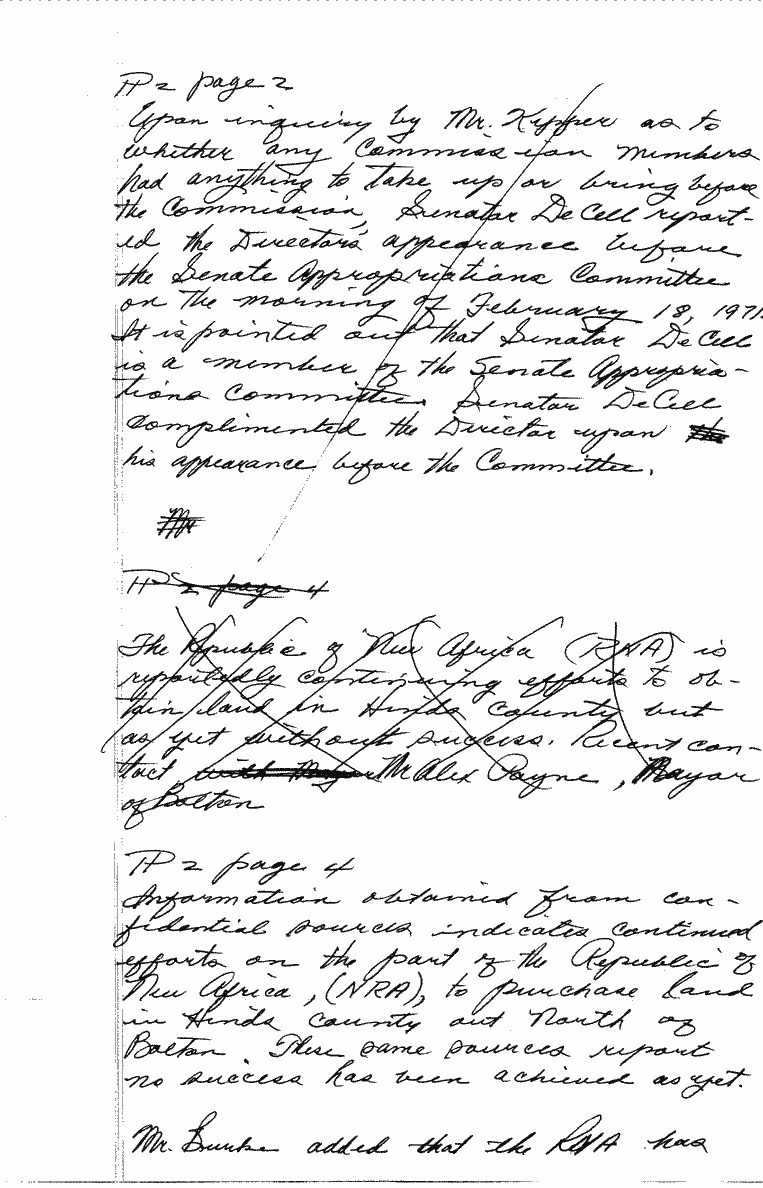 TP 2 page 2
Upon inquiry by Mr. Kipper as to
whether any Commission members
had anything to take up or bring before
the Commission, Senator DeCell report-
ed the Director's appearance before
the Senate Appropriations Committee
on the morning of February 18, 1971.
It is pointed out that Senator DeCell
is a member of the Senate Appropria-
tions Committee. Senator DeCell
complimented the Director upon the
his appearance before the Committee.
Mr
TP 2 page 4
The Republic of New Africa (RNA) is
reportedly continuing efforts to ob-
tain land in Hinds County but
as yet without success. Recent con-
tact with Mayor Mr Alex Payne, Mayor
of Bolton
TP 2 page 4
Information obtained from con-
fidential sources indicates continued
efforts on the part of the Republic of
New Africa, (NRA), to purchase land
in Hinds County out North of
Bolton. These same sources report
no success has been achieved as yet.
Mr. added that the RNA has